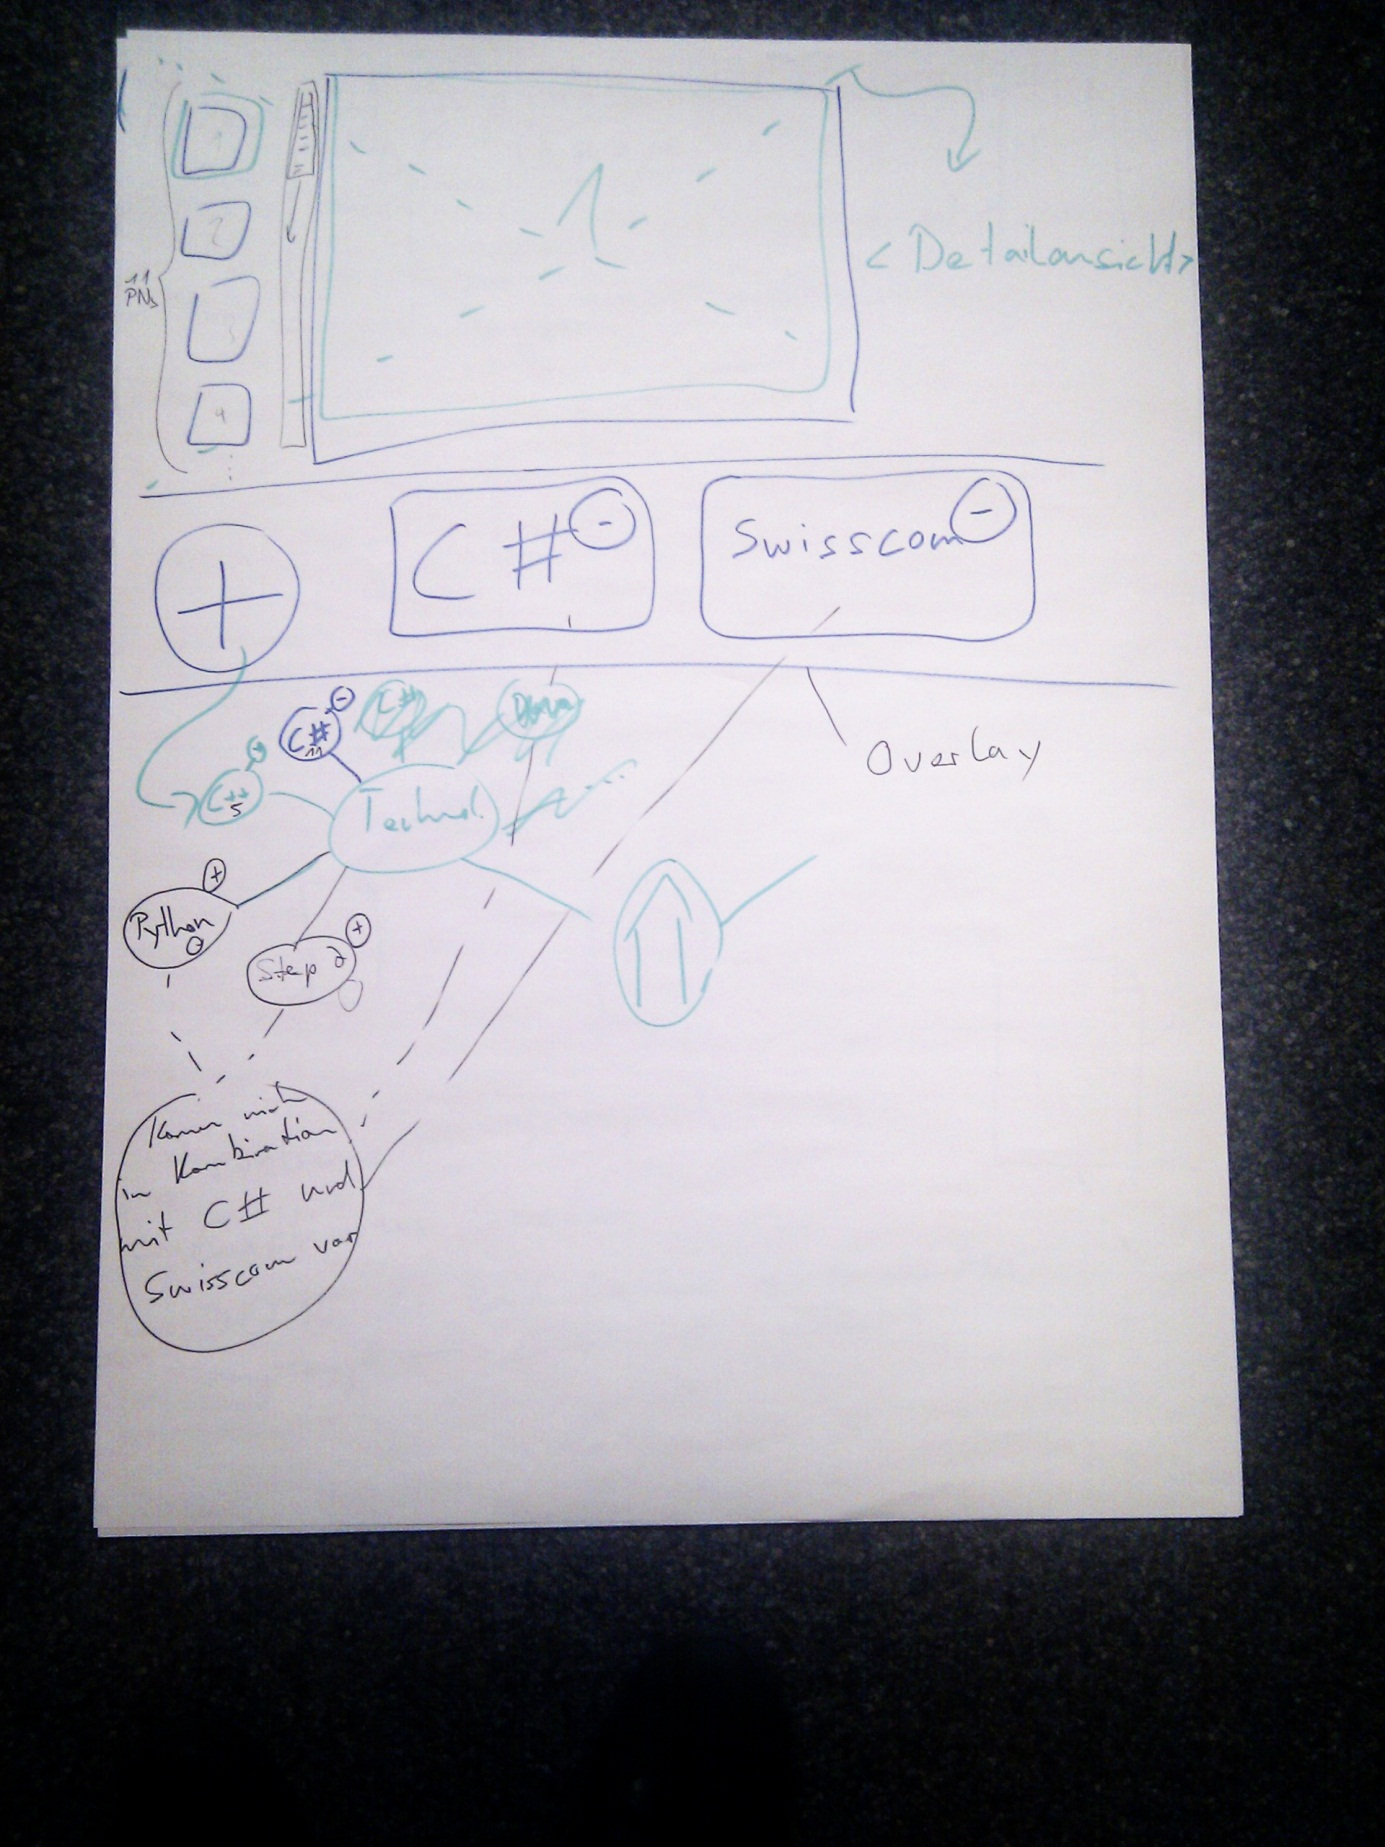 1
2
3
4
11
PNs
1
< Detailansicht >
+
C#
-
Swisscom
-
Overlay
C#
11
-
C#
C++
5
Technol.
Python
0
+
Step 7
+
Kamm nicht
in Kombination
mit C# und
Swisscom vor